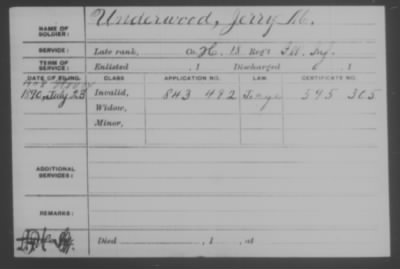 NAME OF SOLDIER: Underwood, Jerry M.
SERVICE: Late rank, Co. H, 18 Reg't Ill. Inf.
TERM OF SERVICE: Enlisted , 1 Discharged , 1
DATE OF FILING. CLASS APPLICATION NO. LAW. CERTIFICATE NO.
1890, July 23 Invalid, 843 492 595 305
Widow,
Minor,
ADDITIONAL SERVICES:
REMARKS:
Died , 1 , at